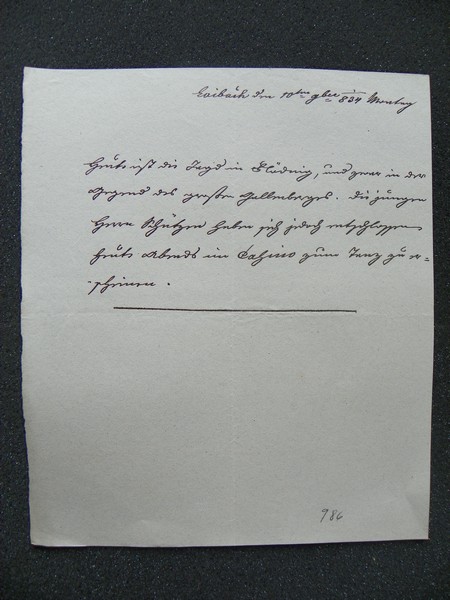 Laibach den 10ten 9ber 1834 Montag
Heute ist die Jagd in Flödnig, und zwar in der
Gegend des großen Gallenberges. Die jungen
Herrn Schützen haben sich jedoch entschlossen
heute Abends im Casino zum Tanz zu er=
scheinen.
986